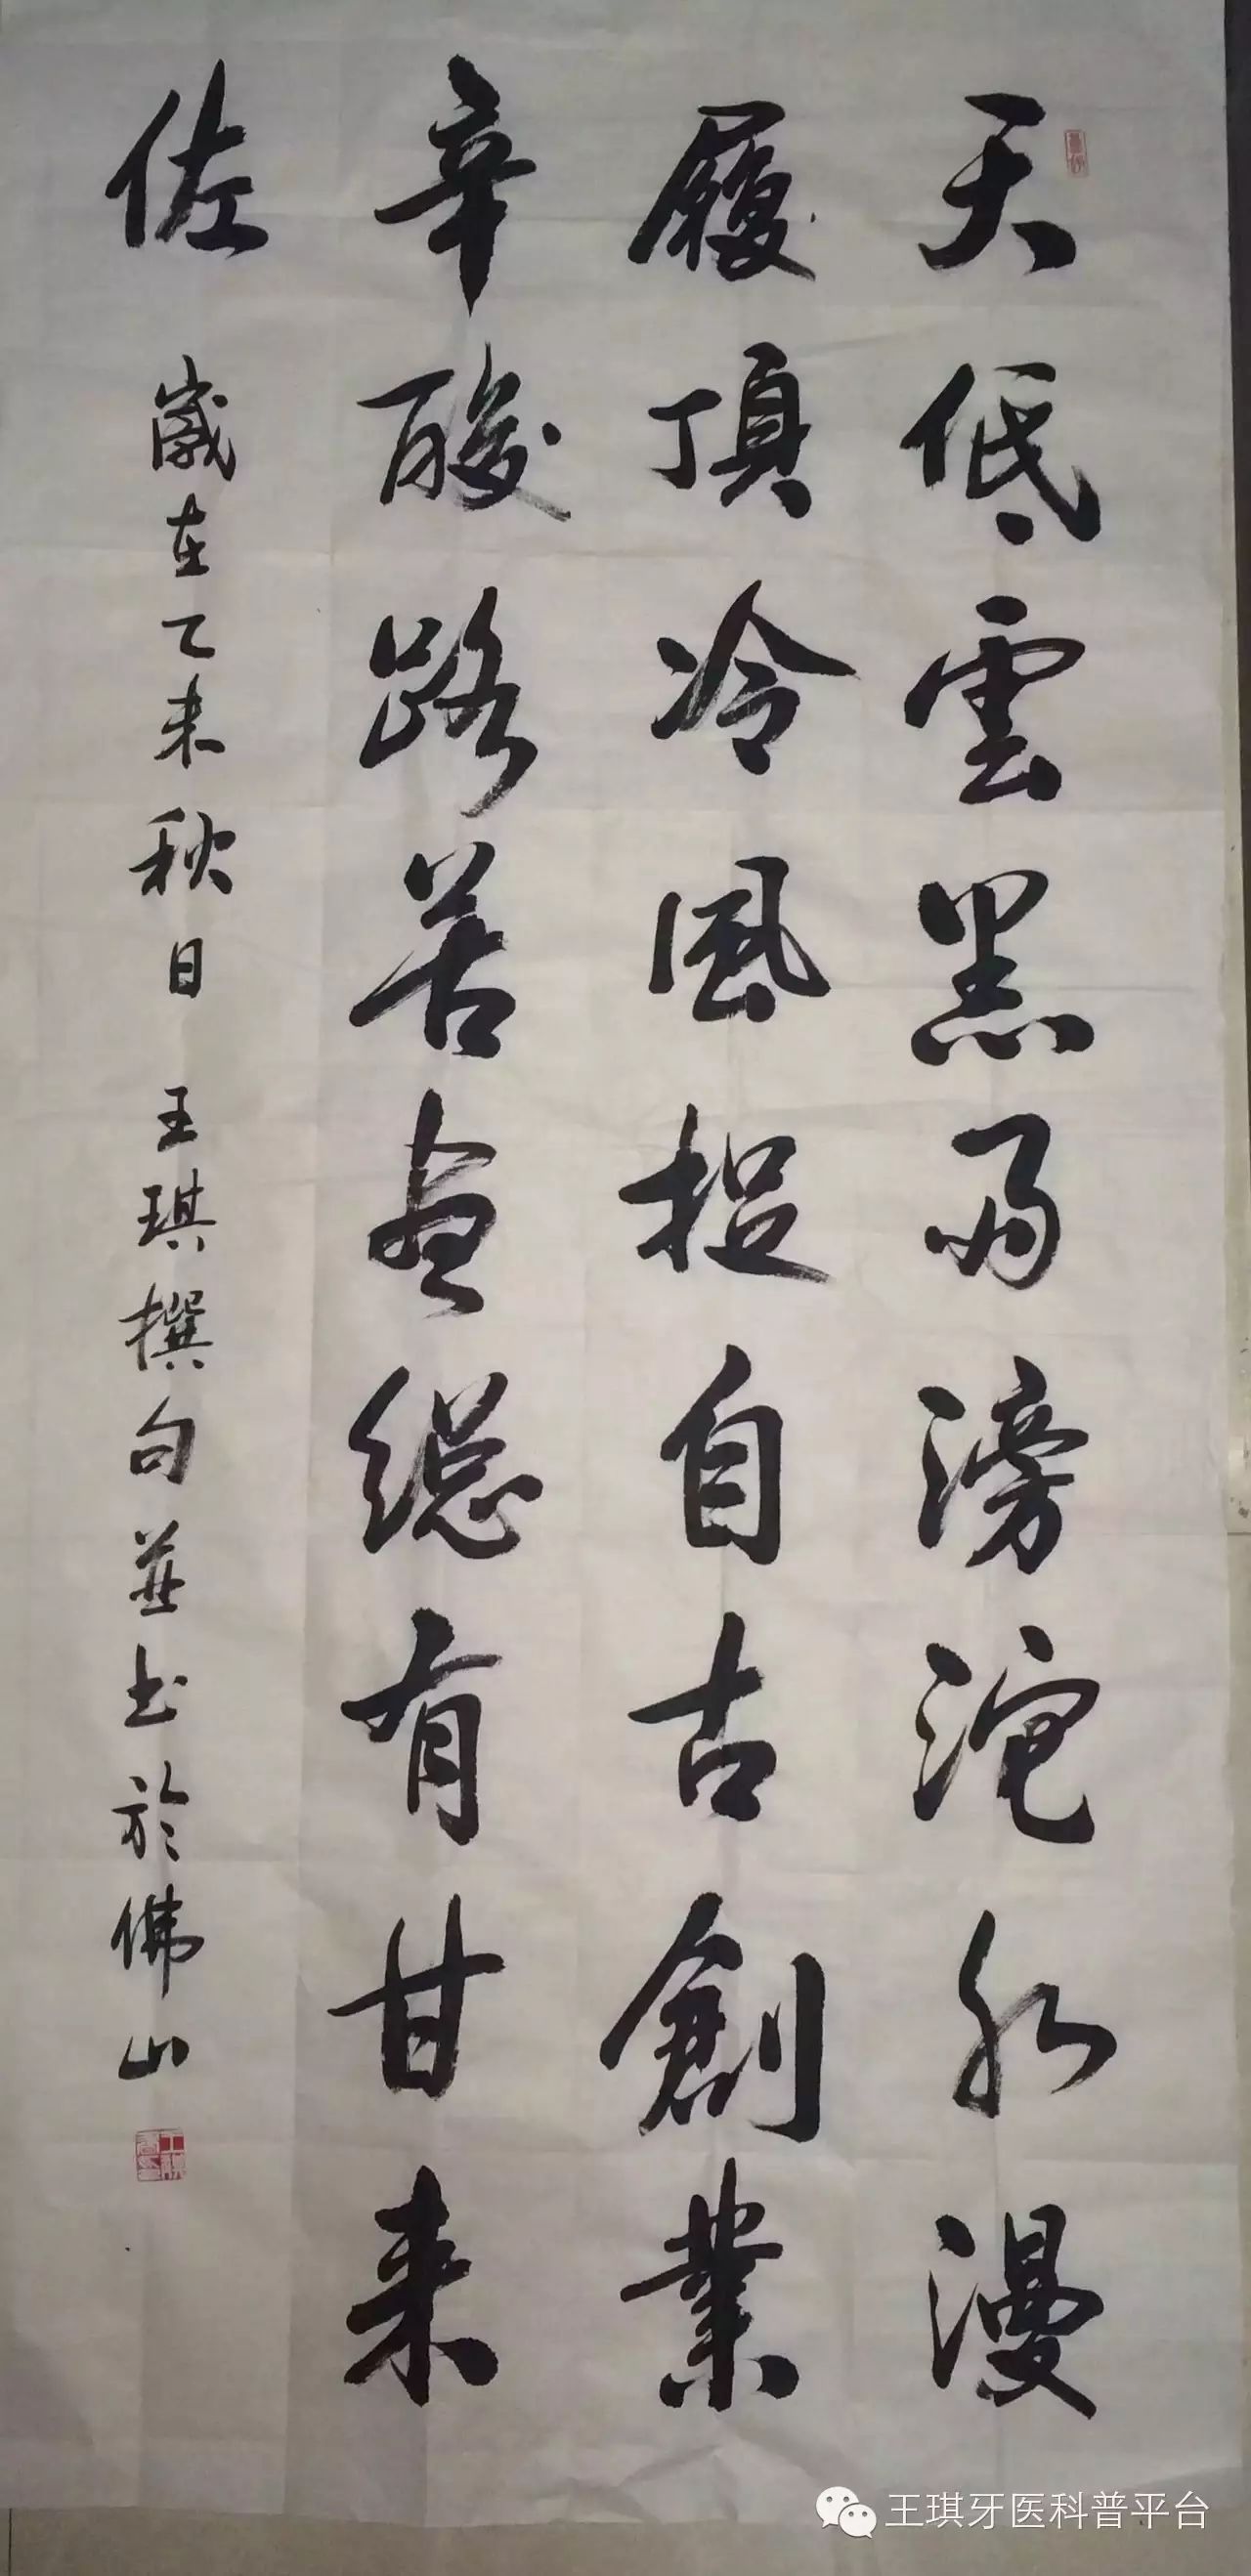 天低雲黑雨滂沱水漫
履頂冷風捉自古創業
辛酸路苦盡總有甘来
佐
歲在乙未秋日 王琪撰句並书於佛山
王琪牙医科普平台